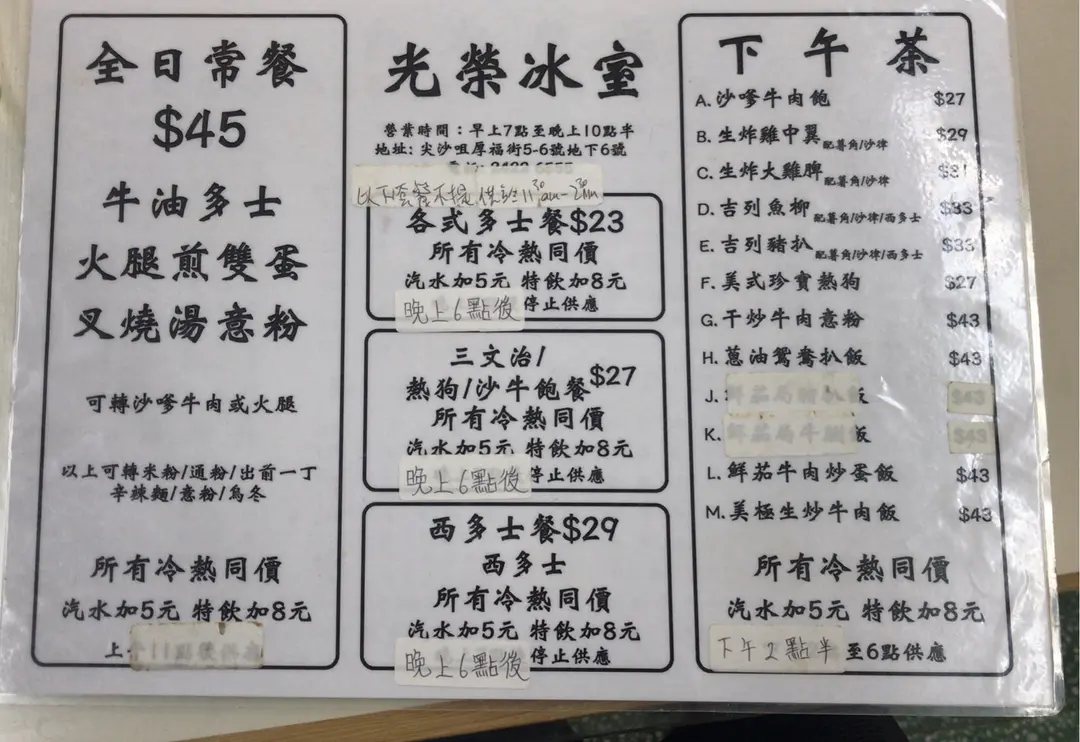 全日常餐
$45
牛油多士
火腿煎雙蛋
叉燒湯意粉
可轉沙嗲牛肉或火腿
以上可轉米粉/通粉/出前一丁
辛辣麵/意粉/烏冬
所有冷熱同價
汽水加5元 特飲加8元
上
光榮冰室
營業時間：早上7點至晚上10點半
地址: 尖沙咀厚福街5-6號地下6號
以下套餐不提供於11:30am-2:30pm
各式多士餐$23
所有冷熱同價
汽水加5元 特飲加8元
晚上6點後 停止供應
三文治/
熱狗/沙牛飽餐 $27
所有冷熱同價
汽水加5元 特飲加8元
晚上6點後 停止供應
西多士餐$29
西多士
所有冷熱同價
汽水加5元 特飲加8元
晚上6點後 停止供應
下午茶
A. 沙嗲牛肉飽 $27
B. 生炸雞中翼 配薯角/沙律 $29
C. 生炸大雞髀 配薯角/沙律 $31
D. 吉列魚柳 配薯角/沙律/西多士 $33
E. 吉列豬扒 配薯角/沙律/西多士 $33
F. 美式珍寶熱狗 $27
G. 干炒牛肉意粉 $43
H. 蔥油鴛鴦扒飯 $43
J. 飯
K. 飯
L. 鮮茄牛肉炒蛋飯 $43
M. 美極生炒牛肉飯 $43
所有冷熱同價
汽水加5元 特飲加8元
下午2點半 至6點供應